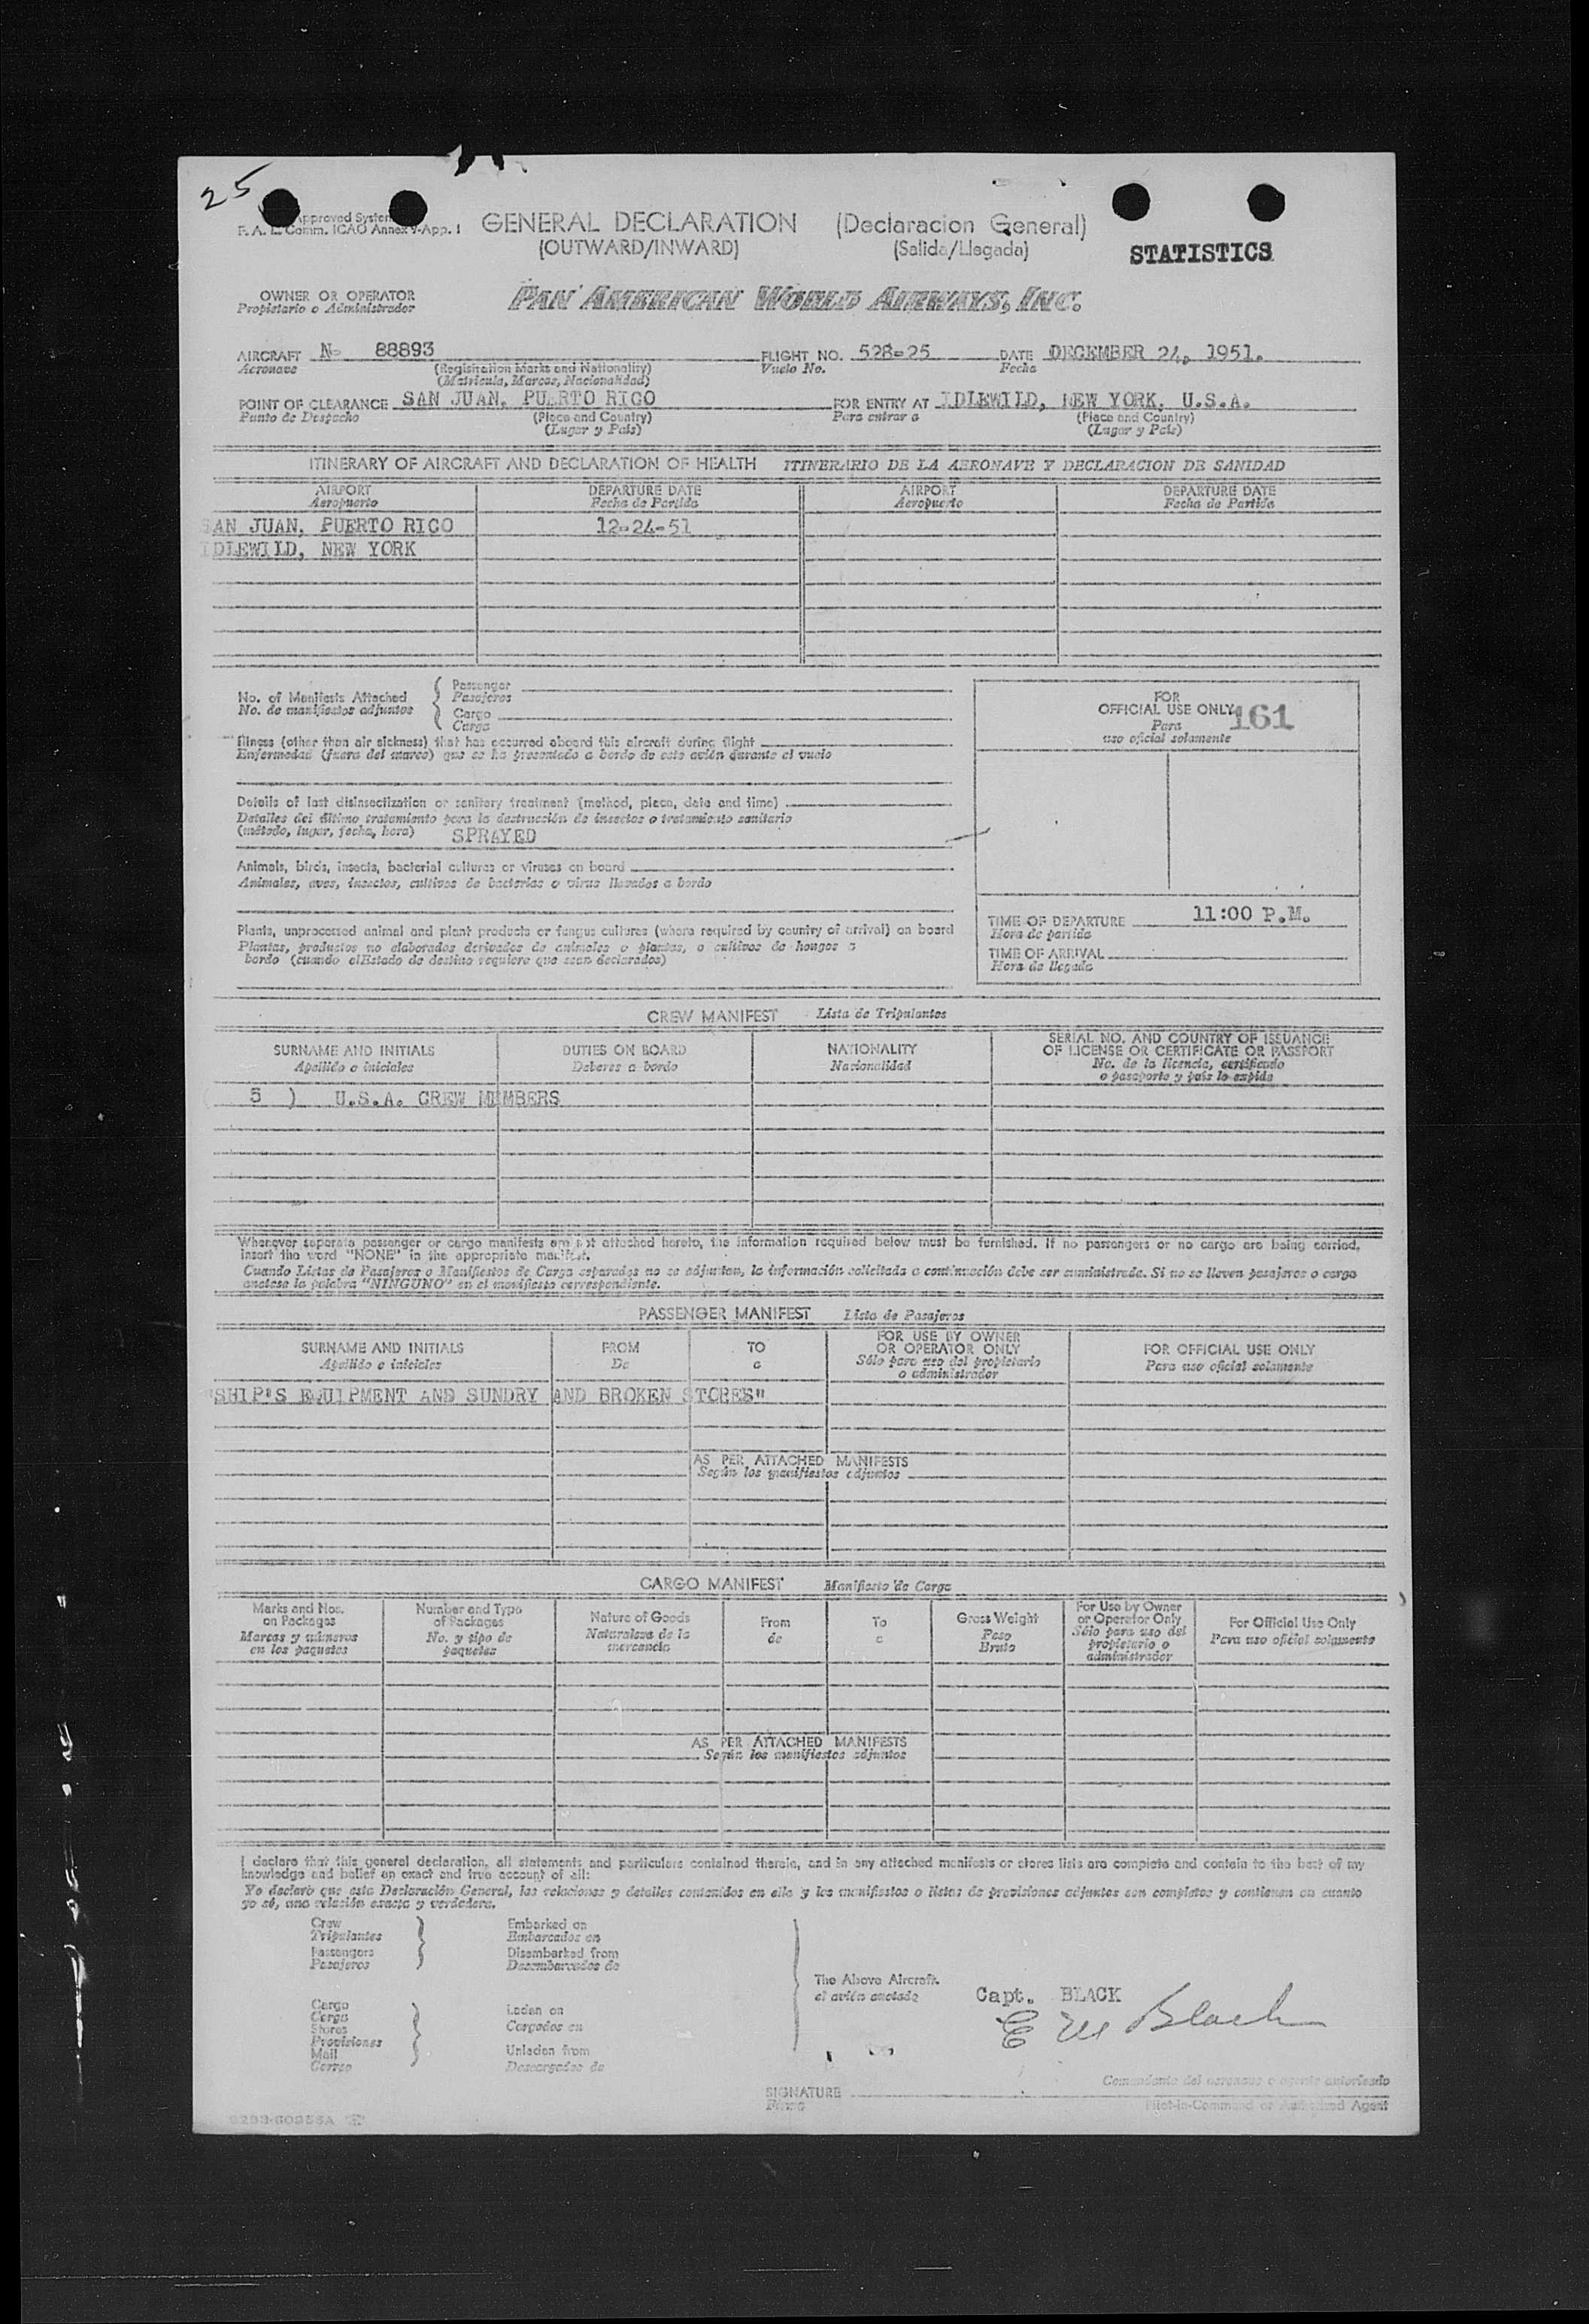 25
Approved System
F. A. L. Comm. ICAO Annex 9-App. I
GENERAL DECLARATION (Declaracion General)
(OUTWARD/INWARD) (Salida/Llegada)
STATISTICS
OWNER OR OPERATOR
Propietario o Administrador
PAN AMERICAN WORLD AIRWAYS, INC.
AIRCRAFT N- 88893 FLIGHT NO. 528-25 DATE DECEMBER 24, 1951.
Aeronave (Registration Marks and Nationality) Vuelo No. Fecha
(Matricula, Marcas, Nacionalidad)
POINT OF CLEARANCE SAN JUAN, PUERTO RICO FOR ENTRY AT IDLEWILD, NEW YORK, U.S.A.
Punto de Despacho (Place and Country) Para entrar a (Place and Country)
(Lugar y Pais) (Lugar y Pais)
ITINERARY OF AIRCRAFT AND DECLARATION OF HEALTH ITINERARIO DE LA AERONAVE Y DECLARACION DE SANIDAD
AIRPORT DEPARTURE DATE AIRPORT DEPARTURE DATE
Aeropuerto Fecha de Partida Aeropuerto Fecha de Partida
SAN JUAN, PUERTO RICO 12-24-51
IDLEWILD, NEW YORK
No. of Manifests Attached
No. de manifiestos adjuntos
Passenger
Pasajeros
Cargo
Carga
Illness (other than air sickness) that has occurred aboard this aircraft during flight
Enfermedad (fuera del mareo) que se ha presentado a bordo de este avión durante el vuelo
Details of last disinsectization or sanitary treatment (method, place, date and time)
Detalles del último tratamiento para la destrucción de insectos o tratamiento sanitario
(método, lugar, fecha, hora) SPRAYED
Animals, birds, insects, bacterial cultures or viruses on board
Animales, aves, insectos, cultivos de bacterias o virus llevados a bordo
Plants, unprocessed animal and plant products or fungus cultures (where required by country of arrival) on board
Plantas, productos no elaborados derivados de animales o plantas, o cultivos de hongos a
bordo (cuando el Estado de destino requiere que sean declarados)
FOR
OFFICIAL USE ONLY 161
Para
uso oficial solamente
TIME OF DEPARTURE 11:00 P.M.
Hora de partida
TIME OF ARRIVAL
Hora de llegada
CREW MANIFEST Lista de Tripulantes
SURNAME AND INITIALS DUTIES ON BOARD NATIONALITY SERIAL NO. AND COUNTRY OF ISSUANCE
OF LICENSE OR CERTIFICATE OR PASSPORT
Apellido e iniciales Deberes a bordo Nacionalidad No. de la licencia, certificado
o pasaporte y país lo expide
5 ) U.S.A. CREW MEMBERS
Whenever separate passenger or cargo manifests are not attached hereto, the information required below must be furnished. If no passengers or no cargo are being carried,
insert the word "NONE" in the appropriate manifest.
Cuando Listas de Pasajeros o Manifiestos de Carga separados no se adjuntan, la información solicitada a continuación debe ser suministrada. Si no se lleven pasajeros o carga
anótese la palabra "NINGUNO" en el manifiesto correspondiente.
PASSENGER MANIFEST Lista de Pasajeros
SURNAME AND INITIALS FROM TO FOR USE BY OWNER
OR OPERATOR ONLY FOR OFFICIAL USE ONLY
Apellido e iniciales De a Sólo para uso del propietario
o administrador Para uso oficial solamente
"SHIP'S EQUIPMENT AND SUNDRY AND BROKEN STORES"
AS PER ATTACHED MANIFESTS
Según los manifiestos adjuntos
CARGO MANIFEST Manifiesto de Carga
Marks and Nos.
on Packages
Marcas y números
en los paquetes
Number and Type
of Packages
No. y tipo de
paquetes
Nature of Goods
Naturaleza de la
mercancia
From
de
To
a
Gross Weight
Peso
Bruto
For Use by Owner
or Operator Only
Sólo para uso del
propietario o
administrador
For Official Use Only
Para uso oficial solamente
AS PER ATTACHED MANIFESTS
Según los manifiestos adjuntos
I declare that this general declaration, all statements and particulars contained therein, and in any attached manifests or stores lists are complete and contain to the best of my
knowledge and belief an exact and true account of all:
Yo declaro que esta Declaración General, las relaciones y detalles contenidos en ella y los manifiestos o listas de provisiones adjuntos son completos y contienen en cuanto
yo sé, una relación exacta y verdadera.
Crew
Tripulantes
Passengers
Pasajeros
Embarked on
Embarcados en
Disembarked from
Desembarcados de
Cargo
Carga
Stores
Provisiones
Mail
Correo
Laden on
Cargados en
Unladen from
Descargados de
The Above Aircraft.
el avión anotado
Capt. BLACK
E M Black
Comandante del aeronave o agente autorizado
SIGNATURE
Firma
Pilot-in-Command or Authorized Agent